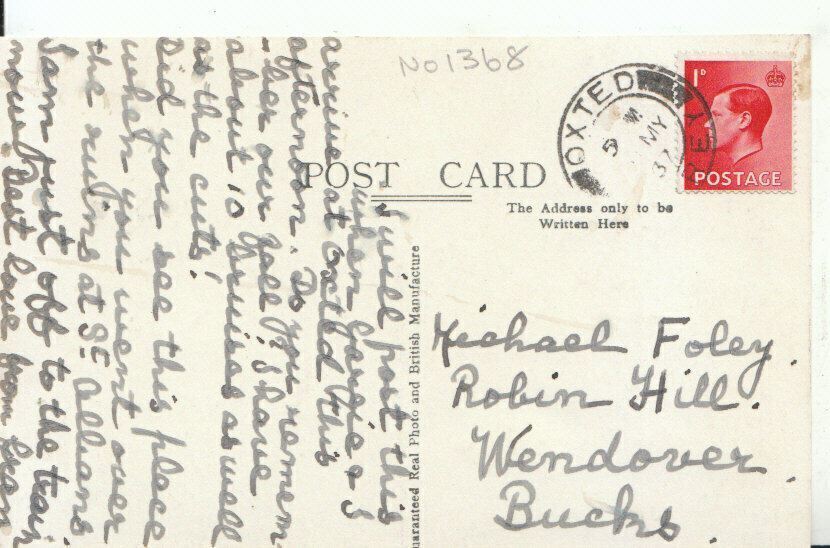 No 1368
OXTED
MY
37
1D
POSTAGE
POST CARD
The Address only to be
Written Here
Guaranteed Real Photo and British Manufacture
Michael Foley.
Robin Hill.
Wendover.
Bucks.
I will post this
when & I
arrive at Oxted this
afternoon. Do you remem
-ber our fall? I have
about 10 bruises as well
as the cuts!
Did you see this place
when you went over
the ruins at St. Albans
I am just off to the train
now. Best love from